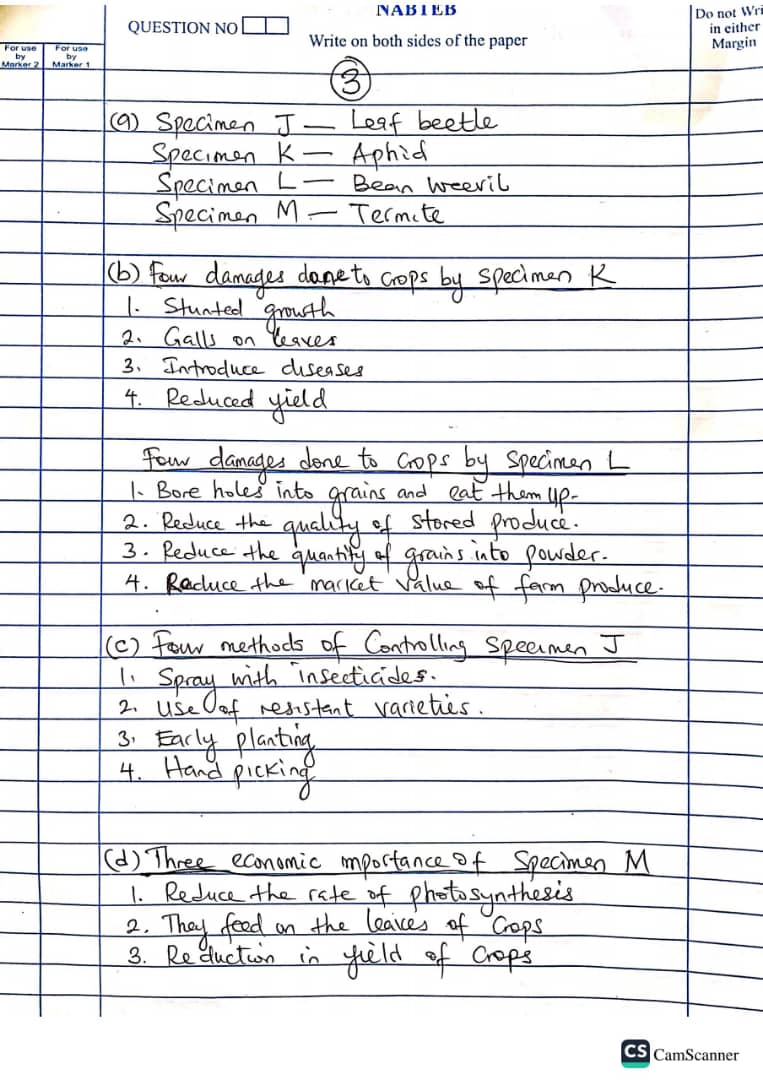 NABTEB
QUESTION NO
Write on both sides of the paper
Do not Wri
in either
Margin
For use
by
Marker 2
For use
by
Marker 1
3
(a) Specimen J — Leaf beetle
Specimen K — Aphid
Specimen L — Bean weevil
Specimen M — Termite
(b) Four damages done to crops by specimen K
1. Stunted growth
2. Galls on leaves
3. Introduce diseases
4. Reduced yield
Four damages done to crops by specimen L
1. Bore holes into grains and eat them up.
2. Reduce the quality of stored produce.
3. Reduce the quantity of grains into powder.
4. Reduce the market value of farm produce.
(c) Four methods of Controlling Specimen J
1. Spray with insecticides.
2. Use of resistant varieties.
3. Early planting
4. Hand picking
(d) Three economic mportance of Specimen M
1. Reduce the rate of photosynthesis
2. They feed on the leaves of Crops
3. Reduction in yield of Crops
CS CamScanner